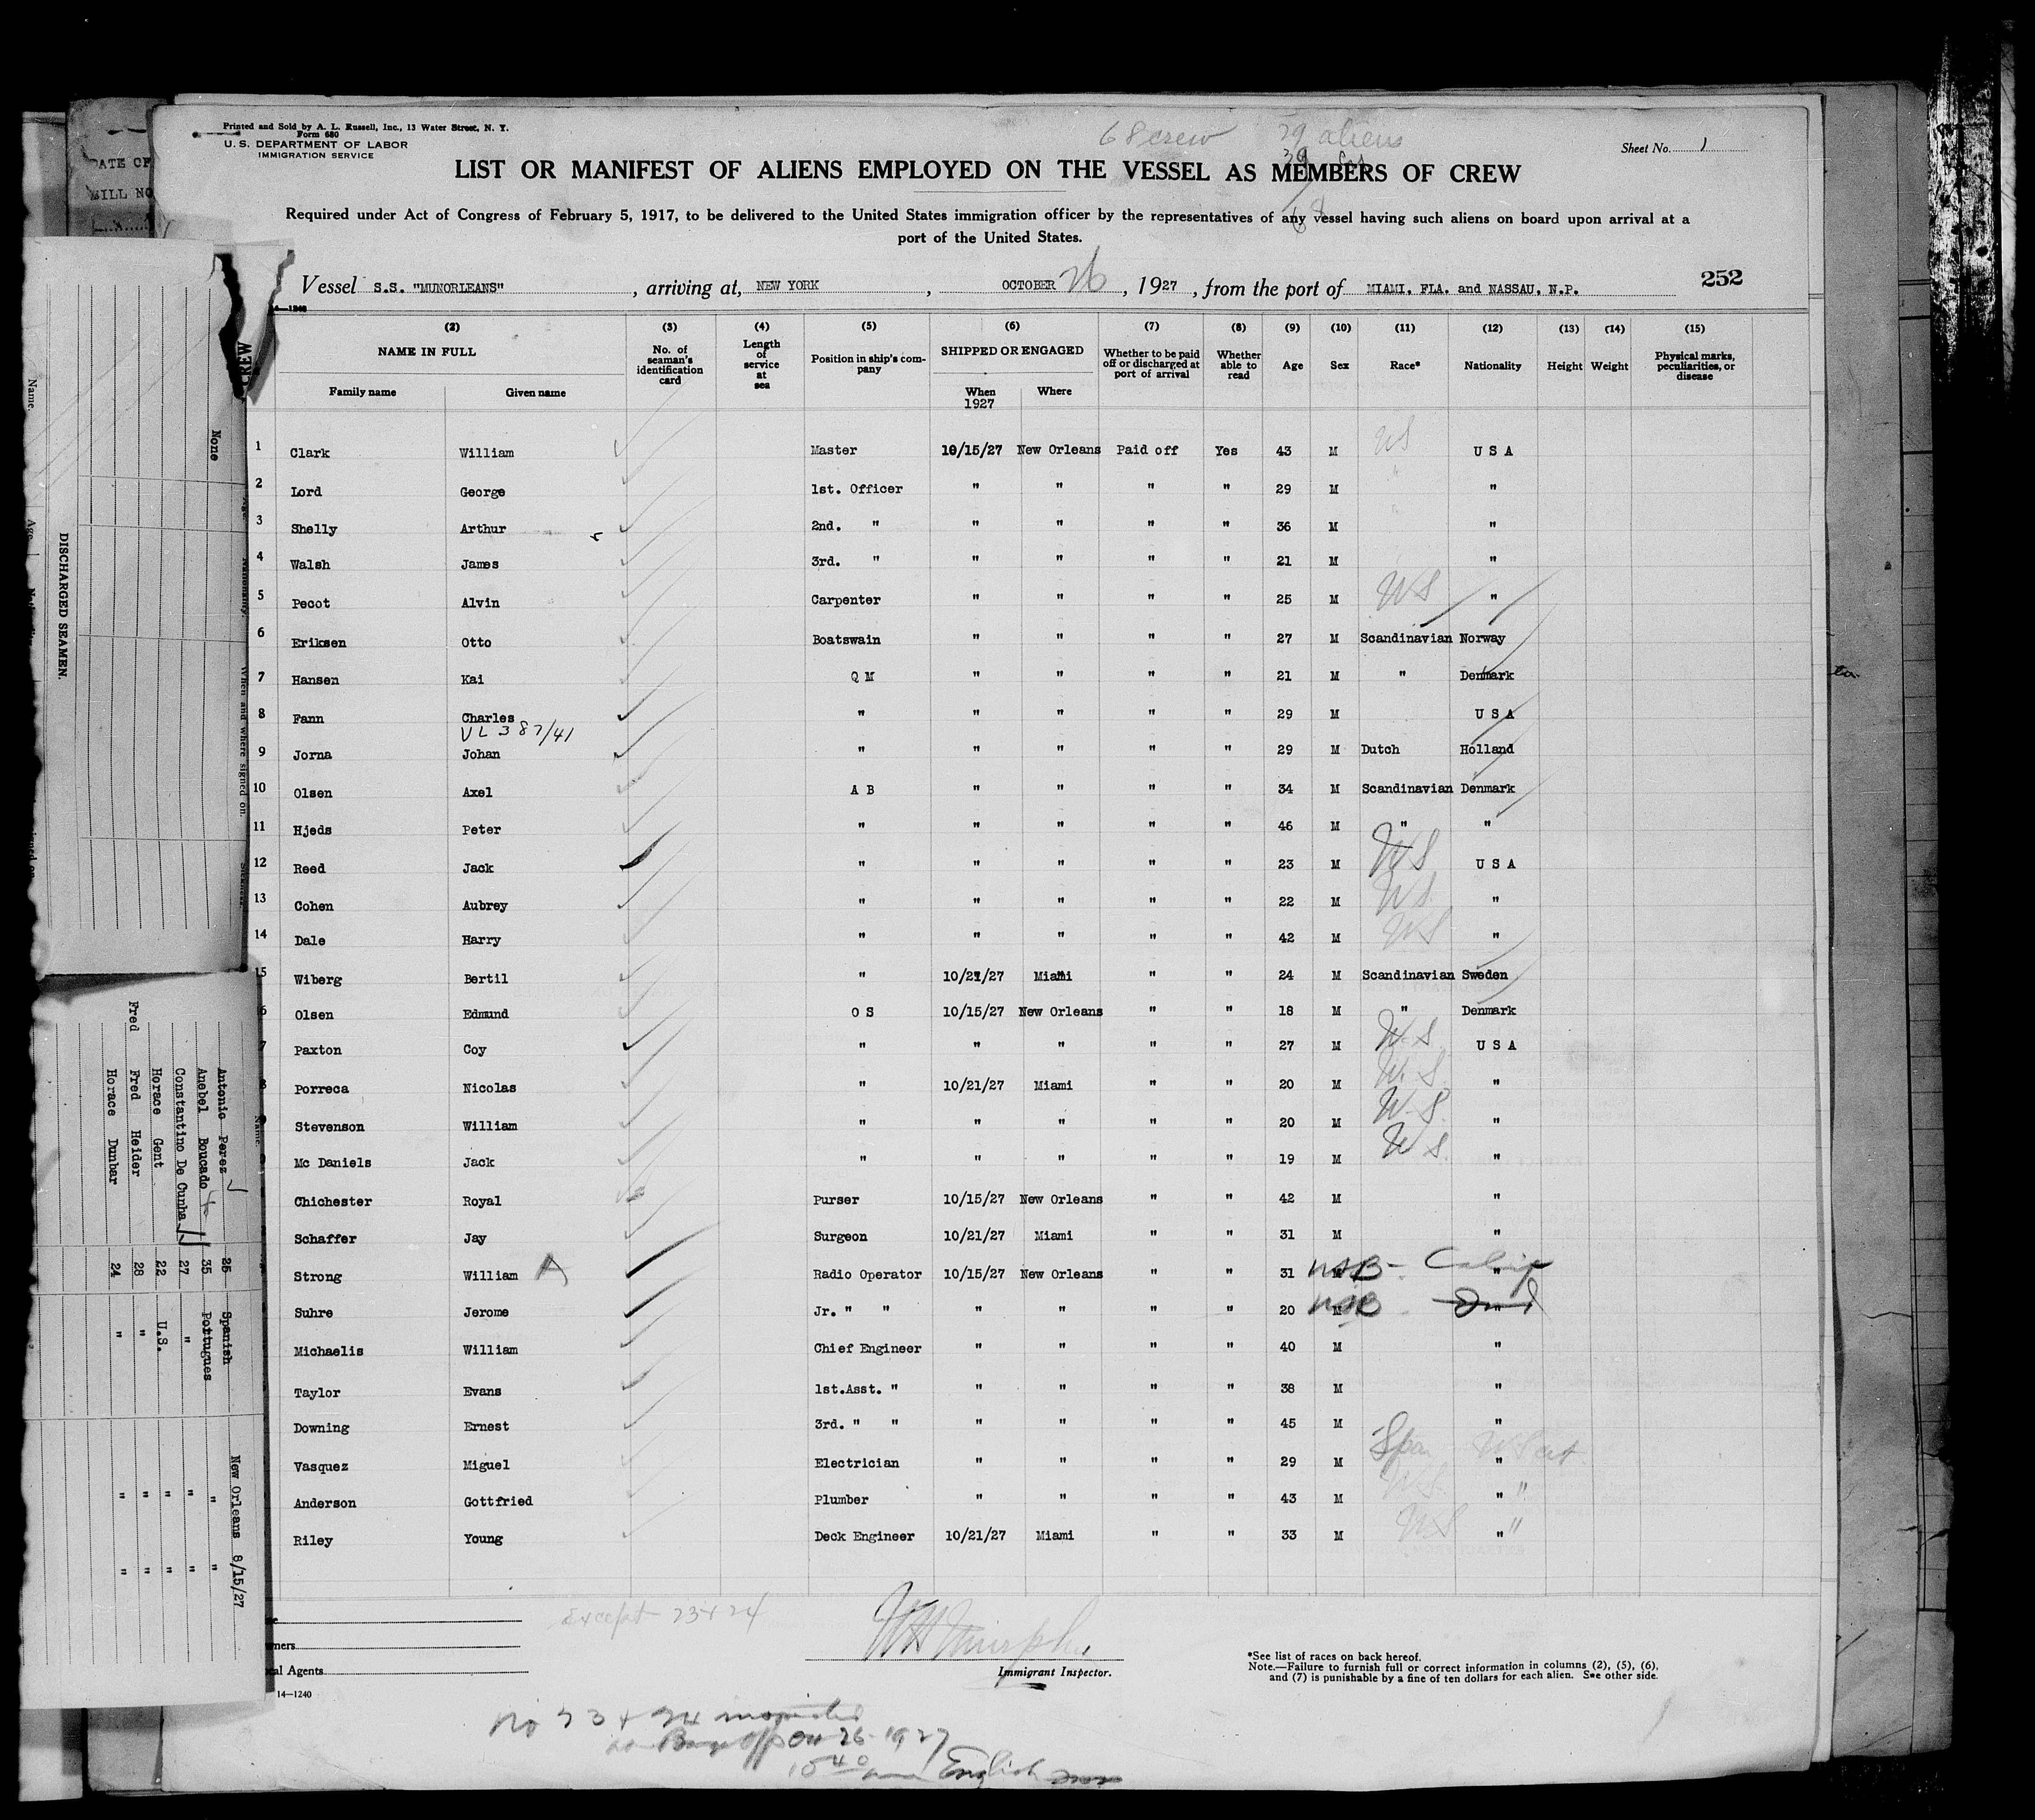 Printed and Sold by A. L. Russell, Inc., 13 Water Street, N. Y.
Form 680
U. S. DEPARTMENT OF LABOR
IMMIGRATION SERVICE
68 crew 29 aliens
39
68
Sheet No. 1
LIST OR MANIFEST OF ALIENS EMPLOYED ON THE VESSEL AS MEMBERS OF CREW
Required under Act of Congress of February 5, 1917, to be delivered to the United States immigration officer by the representatives of any vessel having such aliens on board upon arrival at a
port of the United States.
Vessel S.S. "MUNORLEANS", arriving at, NEW YORK, OCTOBER 26, 1927, from the port of MIAMI. FLA. and NASSAU. N.P. 252
(2) (3) (4) (5) (6) (7) (8) (9) (10) (11) (12) (13) (14) (15)
NAME IN FULL No. of seaman's identification card Length of service at sea Position in ship's company SHIPPED OR ENGAGED Whether to be paid off or discharged at port of arrival Whether able to read Age Sex Race* Nationality Height Weight Physical marks, peculiarities, or disease
Family name Given name When 1927 Where
1 Clark William Master 10/15/27 New Orleans Paid off Yes 43 M US U S A
2 Lord George 1st. Officer " " " " 29 M "
3 Shelly Arthur 2nd. " " " " " 36 M "
4 Walsh James 3rd. " " " " " 21 M "
5 Pecot Alvin Carpenter " " " " 25 M US "
6 Eriksen Otto Boatswain " " " " 27 M Scandinavian Norway
7 Hansen Kai Q M " " " " 21 M " Denmark
8 Fann Charles " " " " " 29 M U S A
VL 387/41
9 Jorna Johan " " " " " 29 M Dutch Holland
10 Olsen Axel A B " " " " 34 M Scandinavian Denmark
11 Hjeds Peter " " " " " 46 M " "
12 Reed Jack " " " " " 23 M US U S A
13 Cohen Aubrey " " " " " 22 M US "
14 Dale Harry " " " " " 42 M US "
15 Wiberg Bertil " 10/21/27 Miami " " 24 M Scandinavian Sweden
6 Olsen Edmund O S 10/15/27 New Orleans " " 18 M " Denmark
7 Paxton Coy " " " " " 27 M U.S. U S A
8 Porreca Nicolas " 10/21/27 Miami " " 20 M U.S. "
Stevenson William " " " " " 20 M U.S. "
Mc Daniels Jack " " " " " 19 M U.S. "
Chichester Royal Purser 10/15/27 New Orleans " " 42 M "
Schaffer Jay Surgeon 10/21/27 Miami " " 31 M "
Strong William A Radio Operator 10/15/27 New Orleans " " 31 M USB - Calif "
Suhre Jerome Jr. " " " " " " 20 M USB "
Michaelis William Chief Engineer " " " " 40 M "
Taylor Evans 1st.Asst. " " " " " 38 M "
Downing Ernest 3rd. " " " " " " 45 M "
Vasquez Miguel Electrician " " " " 29 M Span "
Anderson Gottfried Plumber " " " " 43 M US " "
Riley Young Deck Engineer 10/21/27 Miami " " 33 M US " "
Except 23 + 24
W H Murphy
Immigrant Inspector.
ners
al Agents
14—1240
*See list of races on back hereof.
Note.—Failure to furnish full or correct information in columns (2), (5), (6), and (7) is punishable by a fine of ten dollars for each alien. See other side.
No 23 + 24
Barge Off Oct 26 1927
English
DATE OF
BILL NO
CREW
None
DISCHARGED SEAMEN.
Name.
Age.
Nationality.
When and where signed on.
Antonio Perez 25 Spanish New Orleans 8/15/27
Anebel Boucado 35 Portugues " "
Constantino De Cunha 27 " " "
Horace Gent 22 U.S. " "
Fred Heider 28 " " "
Horace Dunbar 24 " " "
Fred